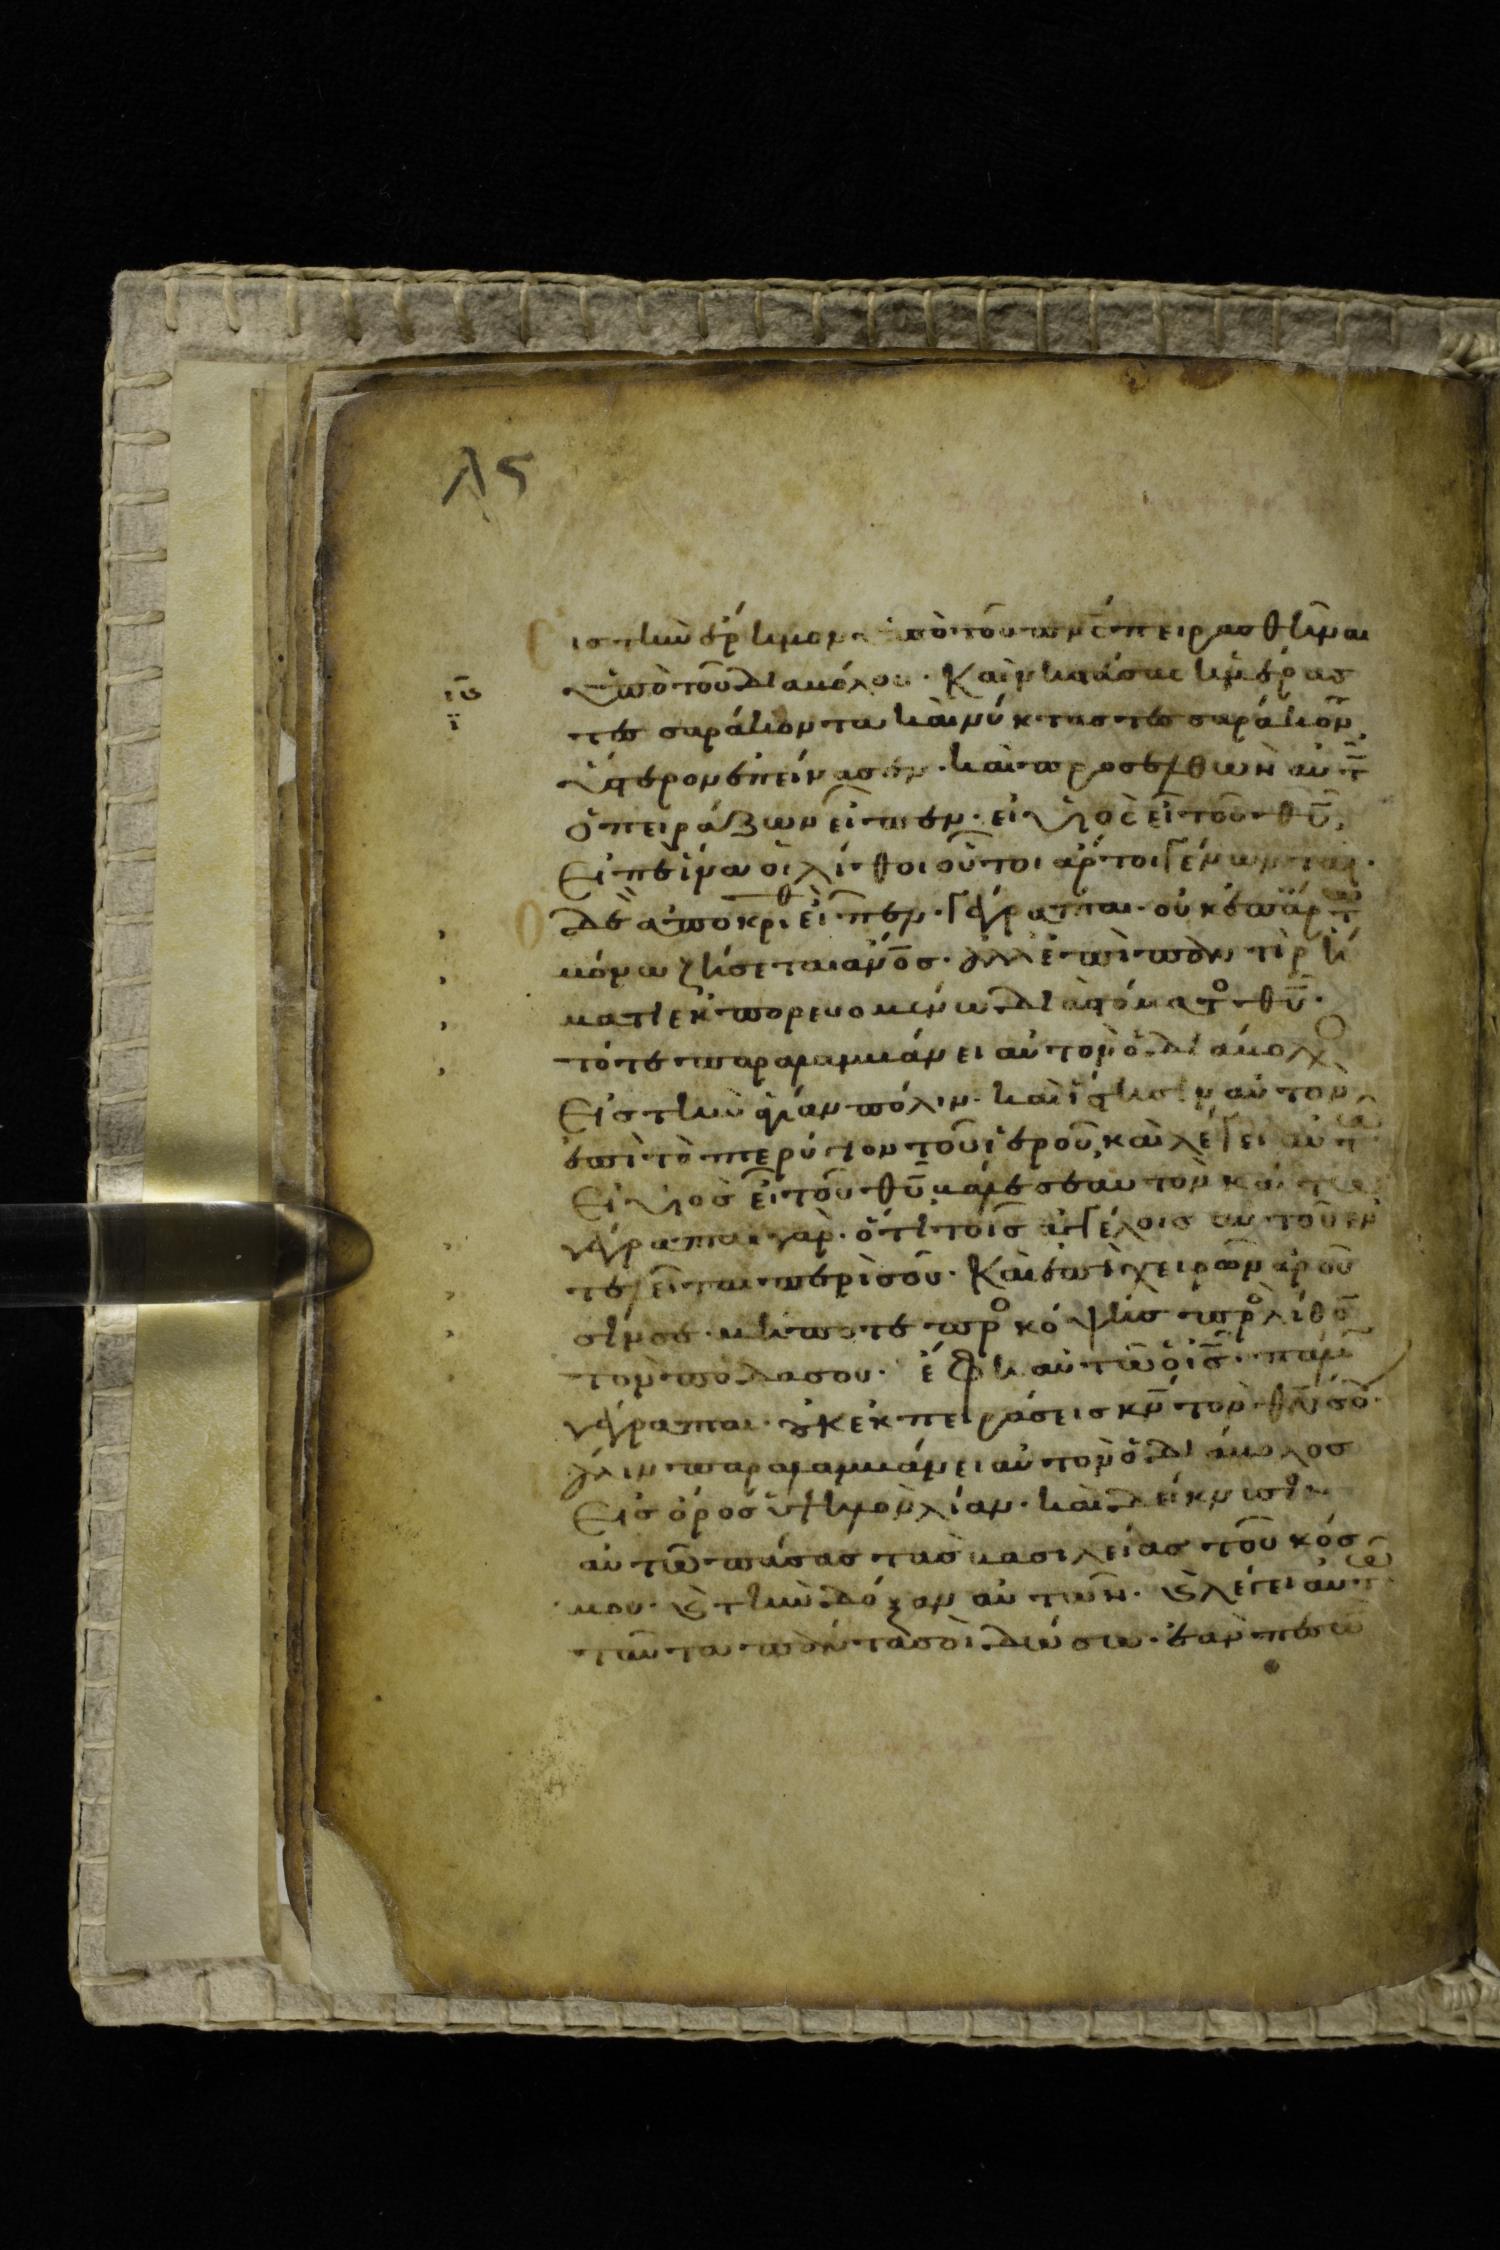 λς
Εις τὴν ἔρημον ὑπὸ τοῦ πν̅ς πειρασθῆναι
ὑπὸ τοῦ διαβόλου. Καὶ νηστεύσας ἡμέρας
ιϛ
ϊ
τεσσαράκοντα καὶ νύκτας τεσσαράκον
ὕστερον ἐπείνασεν. καὶ προσελθὼν αὐτ
ὁ πειράζων εἶπεν. εἰ υἱὸς εἶ τοῦ θυ̅,
Εἰπὲ ἵνα οἱ λίθοι οὗτοι ἄρτοι γένωνται.
Ὁ δὲ ἀποκριθ εἶπεν. Γέγραπται. οὐκ ἐπ ἄρτω
μόνω ζήσεται ἀνο̅ς. ἀλλ ἐπὶ παντὶ ρή
ματι ἐκπορευομένω διὰ στόματο θυ̅.
τότε παραλαμβάνει αὐτὸν ὁ διάβολο
Εἰς τὴν ἁγίαν πόλιν. καὶ ἵστησιν αὐτὸν
ἐπὶ τὸ πτερύγιον τοῦ ἱεροῦ, καὶ λέγει αὐτω
Εἰ υἱὸς εἶ τοῦ θυ̅ βάλε σεαυτὸν κάτω
γέγραπται γὰρ. ὅτι τοῖς ἀγγέλοις αὐτοῦ ἐν
τελεῖται περὶ σοῦ. Καὶ ἐπὶ χειρῶν ἀροῦ
σίν σε. μήποτε προκόψης προ λίθο
τὸν πόδα σου. ἔφη αὐτῶ ὁ ις̅. πάλι
γέγραπται. οὐκ ἐκπειράσεις κν̅ τὸν θν̅ σο.
Πάλιν παραλαμβάνει αὐτὸν ὁ διάβολος
Εἰς ὄρος ὑψηλὸν λίαν. καὶ δείκνυσιν
αὐτῶ πάσας τὰς βασιλείας τοῦ κόσ
μου. καὶ τὴν δόξαν αὐτῶν. καὶ λέγει αὐτω
ταῦτα πάντα σοι δώσω. ἐὰν πεσὼ